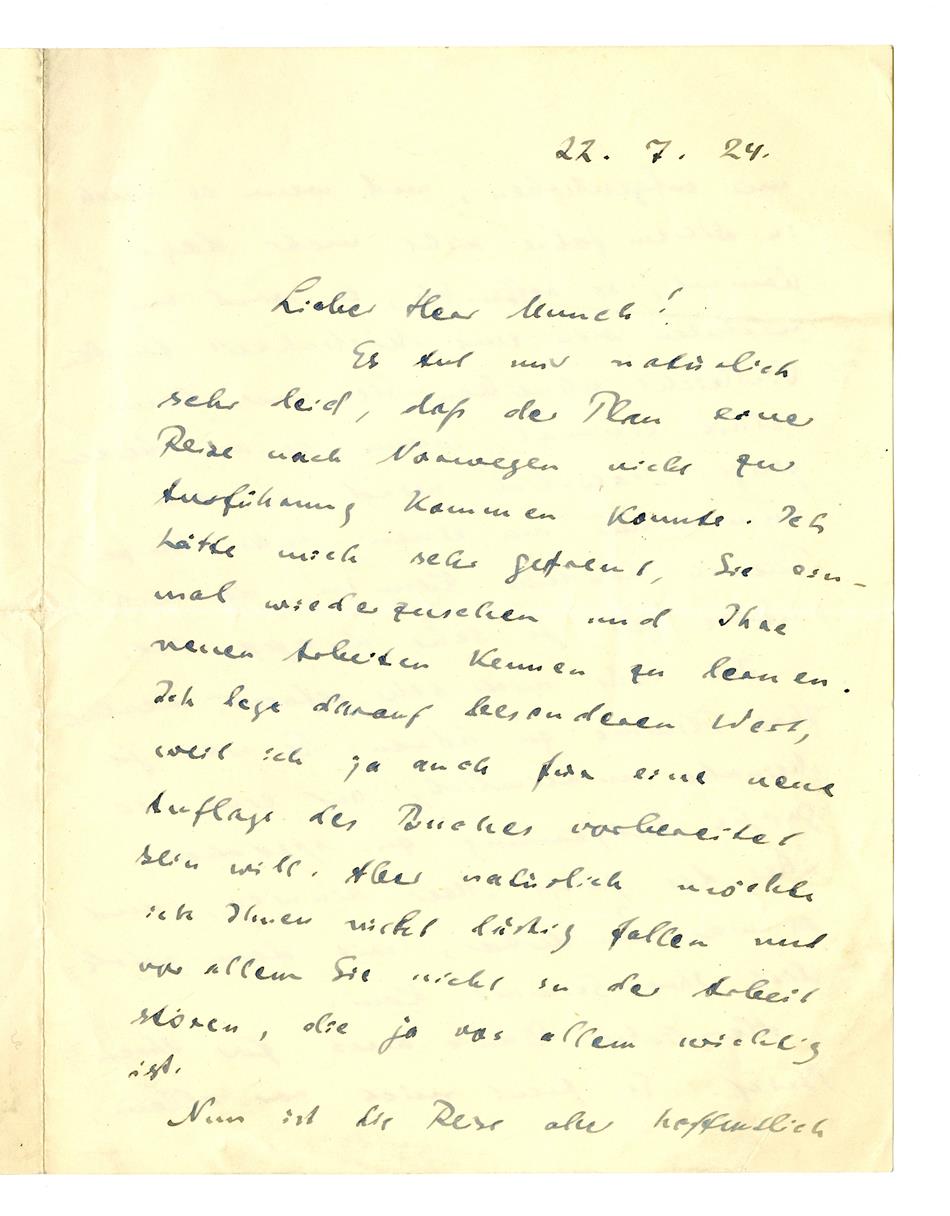 22. 7. 24.
Lieber Herr Munch!
Es tut mir natürlich
sehr leid, daß der Plan einer
Reise nach Norwegen nicht zur
Ausführung kommen konnte. Ich
hätte mich sehr gefreut, Sie ein-
mal wiederzusehen und Ihre
neuen Arbeiten kennen zu lernen.
Ich lege darauf besonderen Wert,
weil ich ja auch für eine neue
Auflage des Buches vorbereitet
sein will. Aber natürlich möchte
ich Ihnen nicht lästig fallen und
vor allem Sie nicht in der Arbeit
stören, die ja vor allem wichtig
ist.
Nun ist die Reise aber hoffentlich